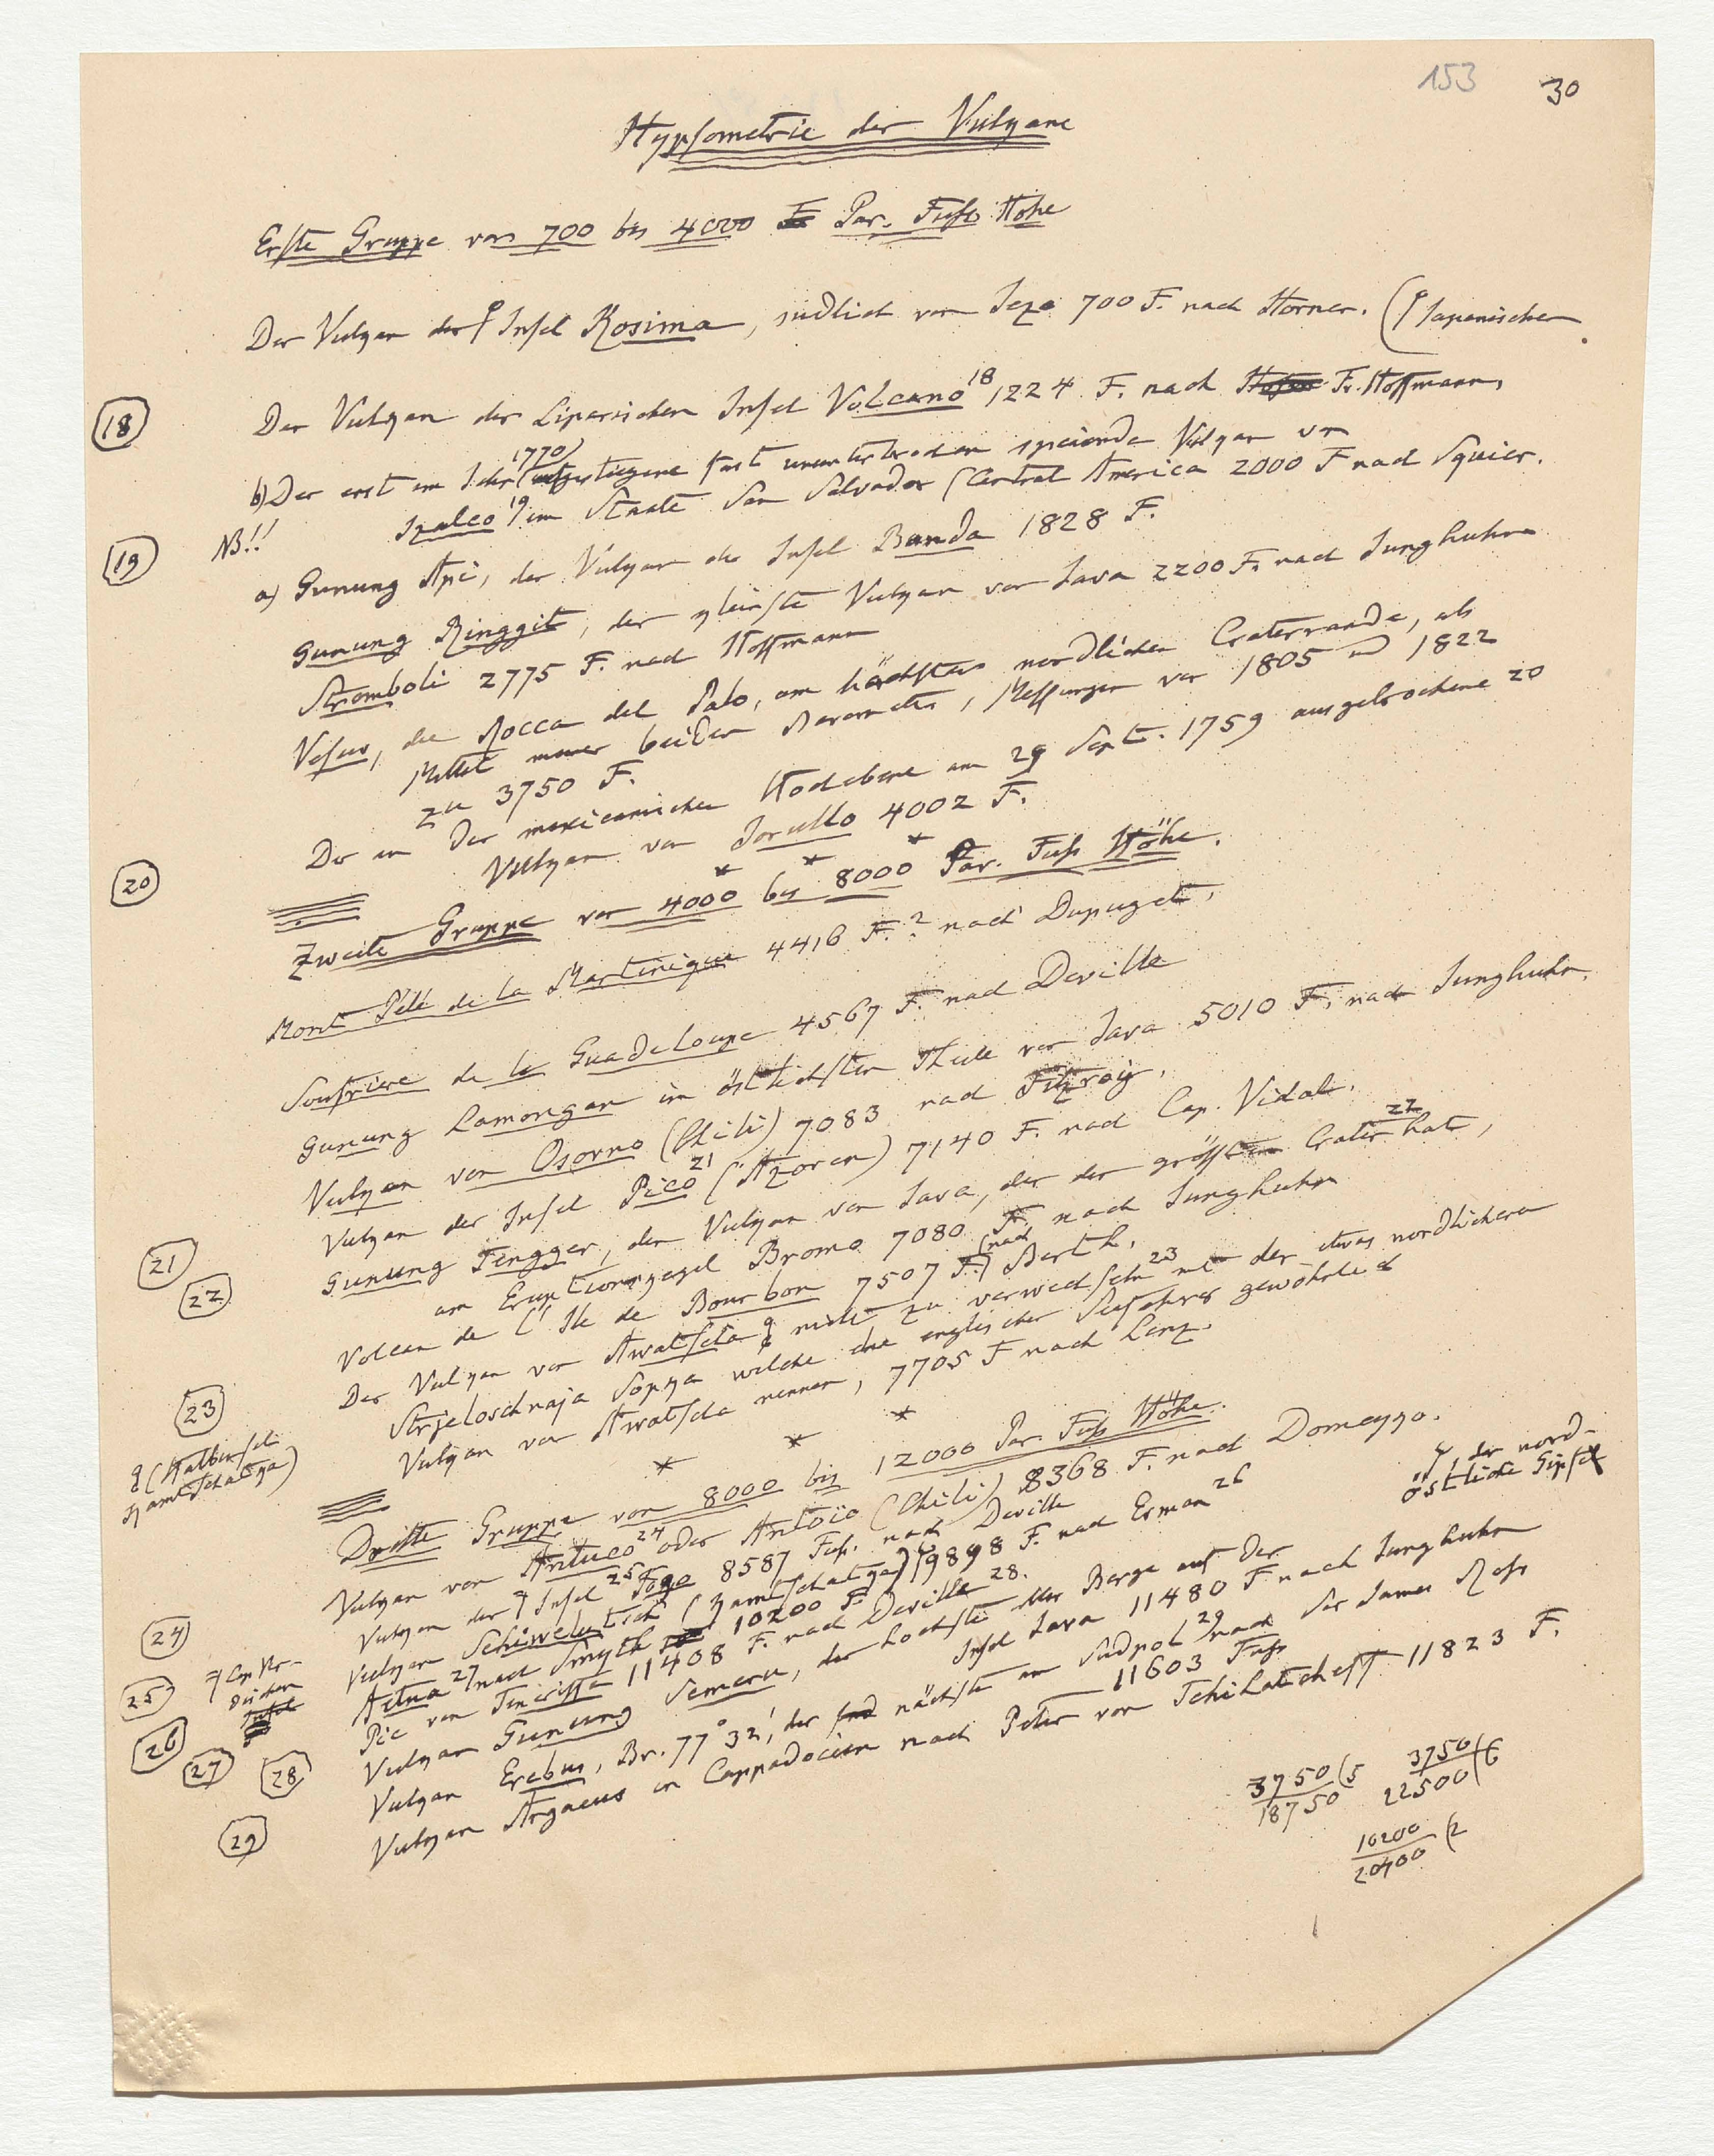 153 30
Hypsometrie der Vulkane
Erste Gruppe von 700 bis 4000 Par. Fuß Höhe
Der Vulkan der Insel Kosima, südlich von Jezo 700 F. nach Horner. (Japanischen
18 Der Vulkan der Liparischen Insel Volcano 18 1224 F. nach Fr. Hoffmann,
1770
b) Der erst im Jahr aufgestiegene fast ununterbrochen speiende Vulkan von
19 NB!! Izalco 19 im Staate San Salvador (Central America 2000 F nach Squier.
a) Gunung Api, der Vulkan der Insel Banda 1828 F.
Gunung Ringgit, der kleinste Vulkan von Java 2200 F. nach Junghuhn
Stromboli 2775 F. nach Hoffmann
Vesuv, die Rocca del Palo, am höchsten nördlichen Craterrande, als
Mittel meiner beiden Barometer, Messungen von 1805 und 1822
zu 3750 F.
Der in der mexicanischen Hochebene am 29 Sept. 1759 ausgebrochene 20
20 Vulkan von Jorullo 4002 F.
* * *
Zweite Gruppe von 4000 bis 8000 Par. Fuß Höhe.
Mont Pélé de la Martinique 4416 F.? nach Dupuget.
Soufriere de la Guadeloupe 4567 F. nach Deville
Gunung Lamongan im östlichsten Theile von Java 5010 F. nach Junghuhn.
Vulkan von Osorno (Chili) 7083 nach Fitzroy.
21 Vulkan der Insel Pico 21 (Azoren) 7140 F. nach Cap. Vidal.
22 Gunung Tengger, der Vulkan von Java, der den größten Crater hat 22,
am Eruptionskegel Bromo 7080 F. nach Junghuhn
Volcan de l'Ile de Bourbon 7507 F. (nach Berth.
23 Der Vulkan von Awatscha nicht zu verwechseln 23 mit der etwas nördlicheren
Strjeloschnaja Sopka welche die englischen Seefahrer gewöhnlich
(Halbinsel Kamtschatka) Vulkan von Awatscha nennen, 7705 F nach Lenz.
* * *
Dritte Gruppe von 8000 bis 12000 Par. Fuß Höhe.
24 Vulkan von Antuco 24 oder Antoio (Chili) 8368 F. nach Domeyko.
der nord-
östliche Gipfel
25 Cap Ver-
dischen
Vulkan der Insel 25 Fogo 8587 Fuß. nach Deville
26 Vulkan Schiwelutsch (Kamtschatka) 9898 F. nach Erman 26
27 Aetna 27 nach Smyth 10200 F.
28 Pic von Teneriffa 11408 F. nach Deville 28.
Vulkan Gunung Semeru, der höchste aller Berge auf der
Insel Java 11480 F nach Junghuhn
29 Vulkan Erebus, Br. 77° 32', der nächste am Südpol 29 nach Sir James Ross
11603 Fuß
Vulkan Argaeus in Cappadocien nach Peter von Tchihatcheff 11823 F.
3750 (5
18750
3750 (6
22500
10200 (2
20400